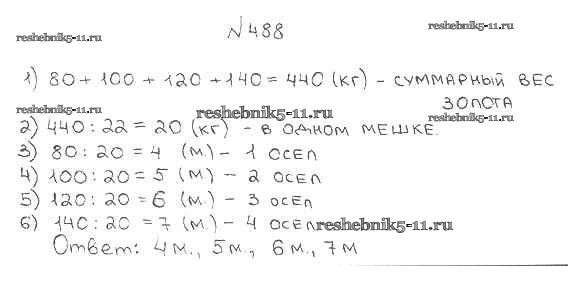 №488
reshebnik5-11.ru
reshebnik5-11.ru
1) 80 + 100 + 120 + 140 = 440 (кг) - суммарный вес
золота
reshebnik5-11.ru
reshebnik5-11.ru
reshebnik5-11.ru
2) 440 : 22 = 20 (кг) - в одном мешке.
3) 80 : 20 = 4 (м.) - 1 осел
4) 100 : 20 = 5 (м) - 2 осел
5) 120 : 20 = 6 (м.) - 3 осел
6) 140 : 20 = 7 (м.) - 4 осел
reshebnik5-11.ru
Ответ: 4 м., 5 м., 6 м., 7 м